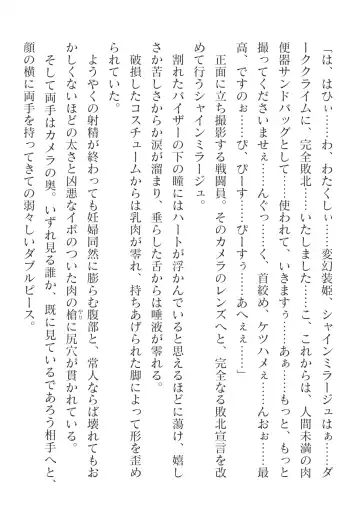 「は、はひぃ……わ、わたくしぃ……変幻装姫、シャインミラージュはぁ……ダ
ーククライムに、完全敗北……いたしました……こ、これからは、人間未満の肉
便器サンドバッグとして……使われて、いきますぅ……あぁ……もっと、もっと
撮ってくださいませぇ……んぐっ……く、首絞め、ケツハメぇ……んぐぅぅ……最
高、ですのぉ……ぴ、ぴーす……ぴーすぅ……あへぇぇ……」
正面に立ち撮影する戦闘員。そのカメラのレンズへと、完全なる敗北宣言を改
めて行うシャインミラージュ。
割れたバイザーの下の瞳にはハートが浮かんでいると思えるほどに蕩け、嬉し
さか苦しさからか涙が溜まり、垂らした舌からは唾液が零れる。
破損したコスチュームからは乳肉が零れ、持ちあげられた脚によって形を歪め
られていた。
ようやくの射精が終わっても妊婦同然に膨らむ腹部と、常人ならば壊れてもお
かしくないほどの太さと凶悪なイボのついた肉の槍に尻穴が貫かれている。
そして両手はカメラの奥。いずれ見る誰か、既に見ているであろう相手へと、
顔の横に両手を持ってきての弱々しいダブルピース。